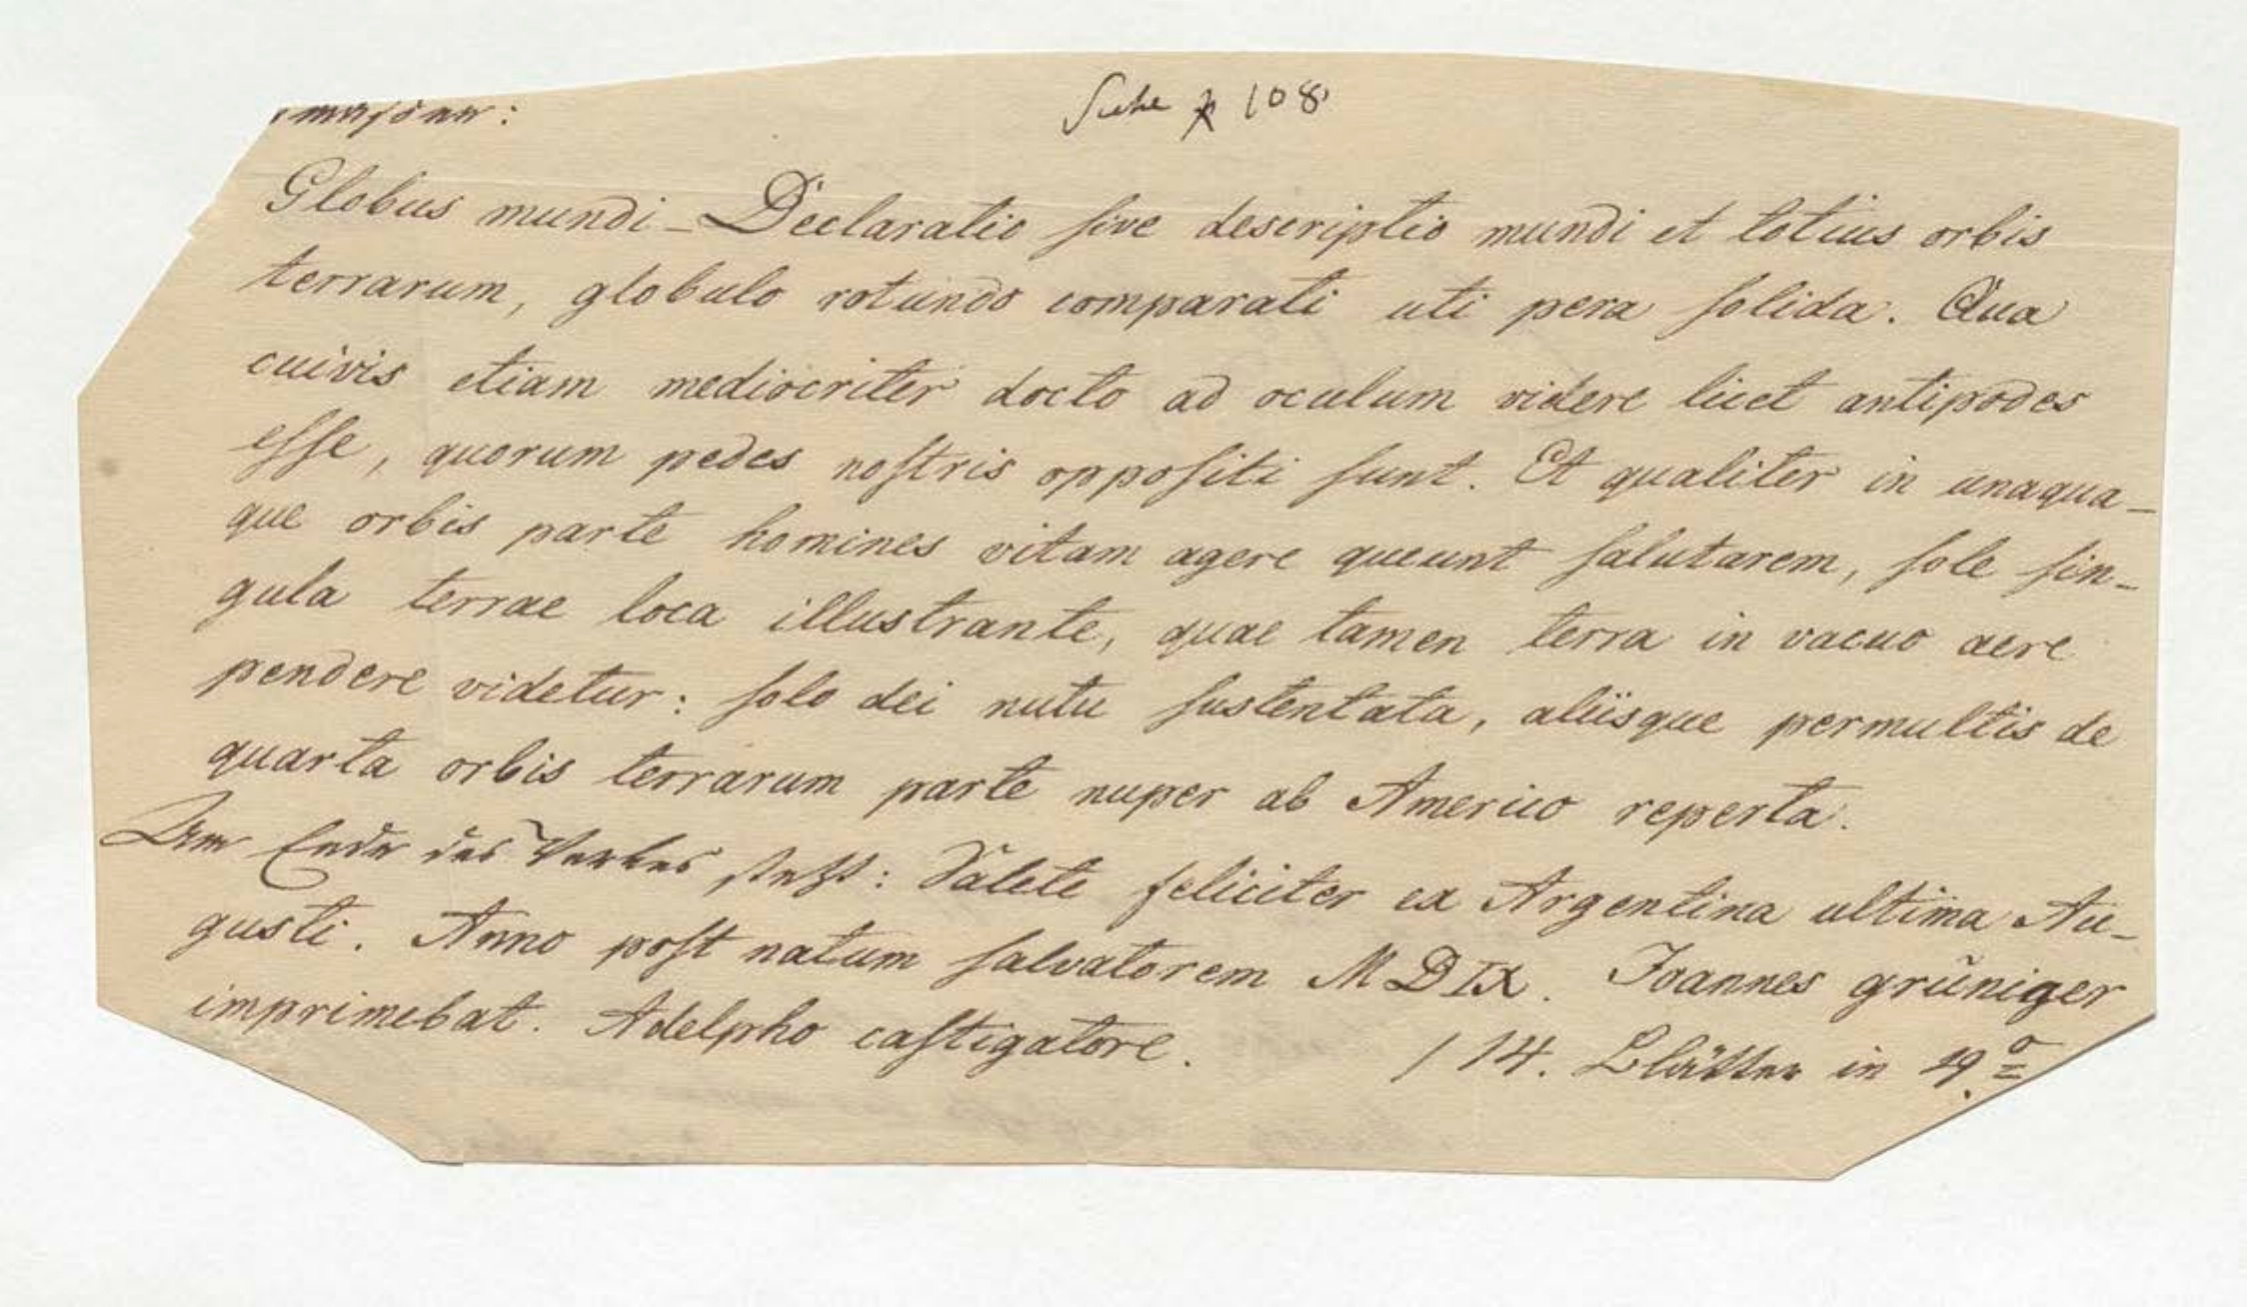 Siehe 108
Globus mundi – Declaratio ſive descriptio mundi et totius orbis
terrarum, globulo rotundo comparati uti pera ſolida. Qua
cuivis etiam mediocriter docto ad oculum videre licet antipodes
eſſe, quorum pedes noſtris oppoſiti ſunt. Et qualiter in unaqua-
que orbis parte homines vitam agere queunt ſalutarem, ſole ſin-
gula terrae loca illustrante, quae tamen terra in vacuo aere
pendere videtur: ſolo dei nutu ſustentata, aliisque permultis de
quarta orbis terrarum parte nuper ab Americo reperta.
Am Ende des Werkes ſteht: Valete feliciter ex Argentina ultima Au-
gusti. Anno poſt natum ſalvatorem MDIX. Joannes grüniger
imprimebat. Adelpho caſtigatore. / 14. Blätter in 4º